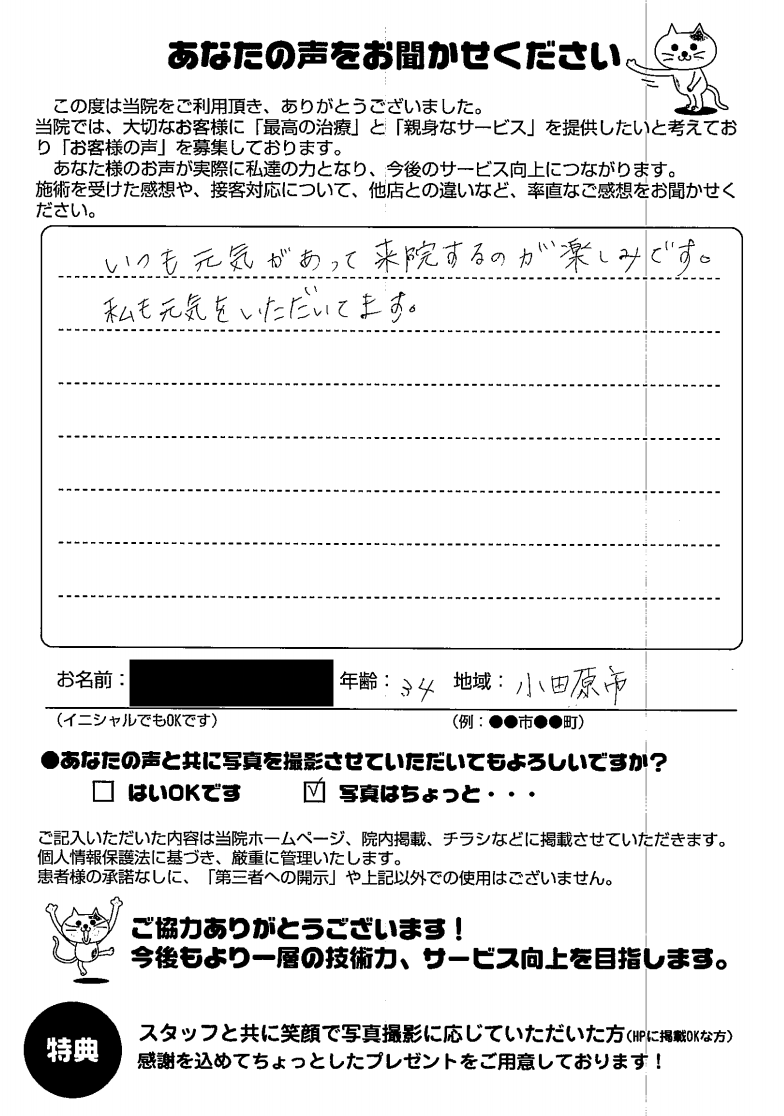 あなたの声をお聞かせください
この度は当院をご利用頂き、ありがとうございました。
当院では、大切なお客様に「最高の治療」と「親身なサービス」を提供したいと考えてお
り「お客様の声」を募集しております。
あなた様のお声が実際に私達の力となり、今後のサービス向上につながります。
施術を受けた感想や、接客対応について、他店との違いなど、率直なご感想をお聞かせく
ださい。
いつも元気があって来院するのが楽しみです。
私も元気をいただいてます。
お名前： 年齢：34 地域：小田原市
（イニシャルでもOKです） （例：●●市●●町）
●あなたの声と共に写真を撮影させていただいてもよろしいですか？
□ はいOKです ☑ 写真はちょっと・・・
ご記入いただいた内容は当院ホームページ、院内掲載、チラシなどに掲載させていただきます。
個人情報保護法に基づき、厳重に管理いたします。
患者様の承諾なしに、「第三者への開示」や上記以外での使用はございません。
ご協力ありがとうございます！
今後もより一層の技術力、サービス向上を目指します。
特典
スタッフと共に笑顔で写真撮影に応じていただいた方（HPに掲載OKな方）
感謝を込めてちょっとしたプレゼントをご用意しております！